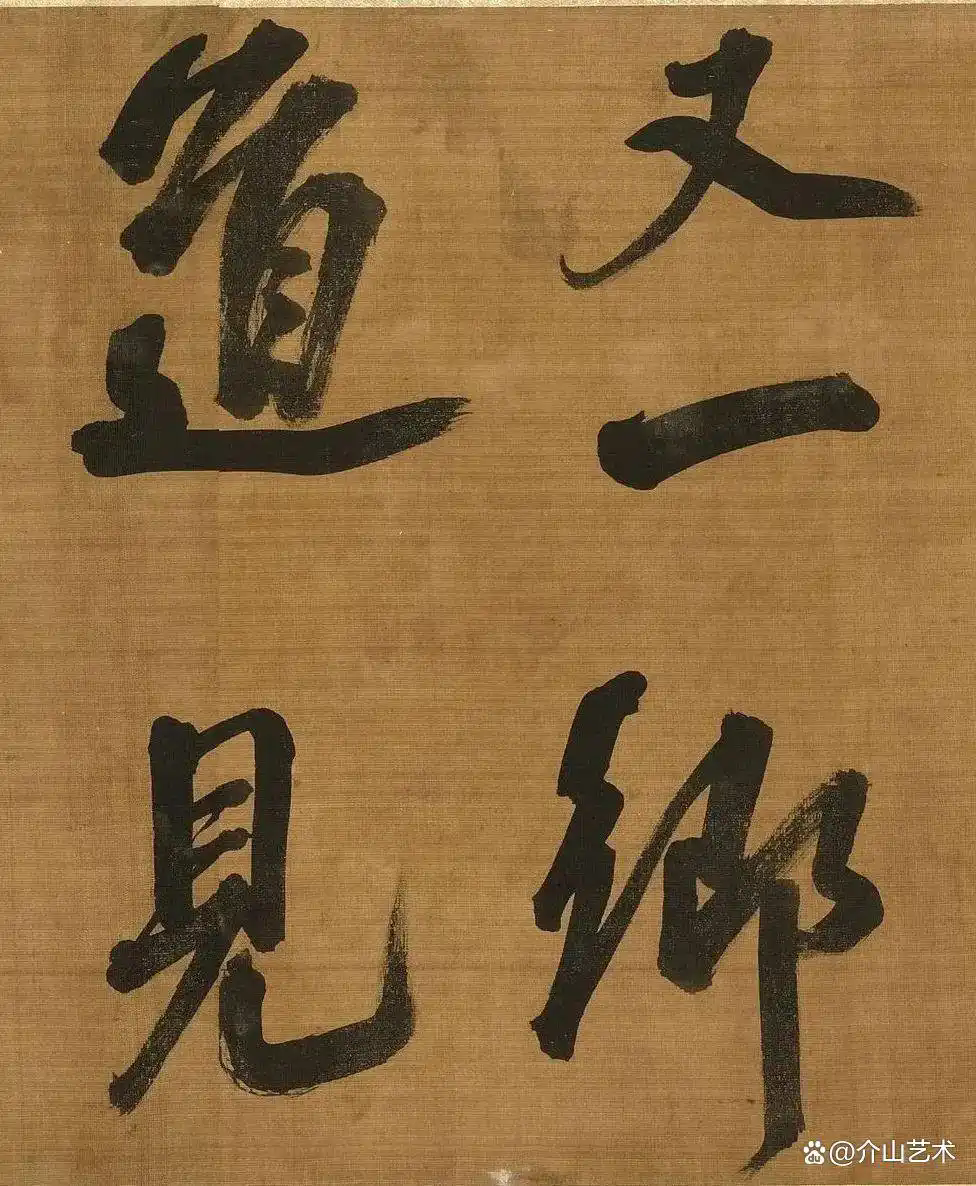 又一鄉
道見
@介山艺术